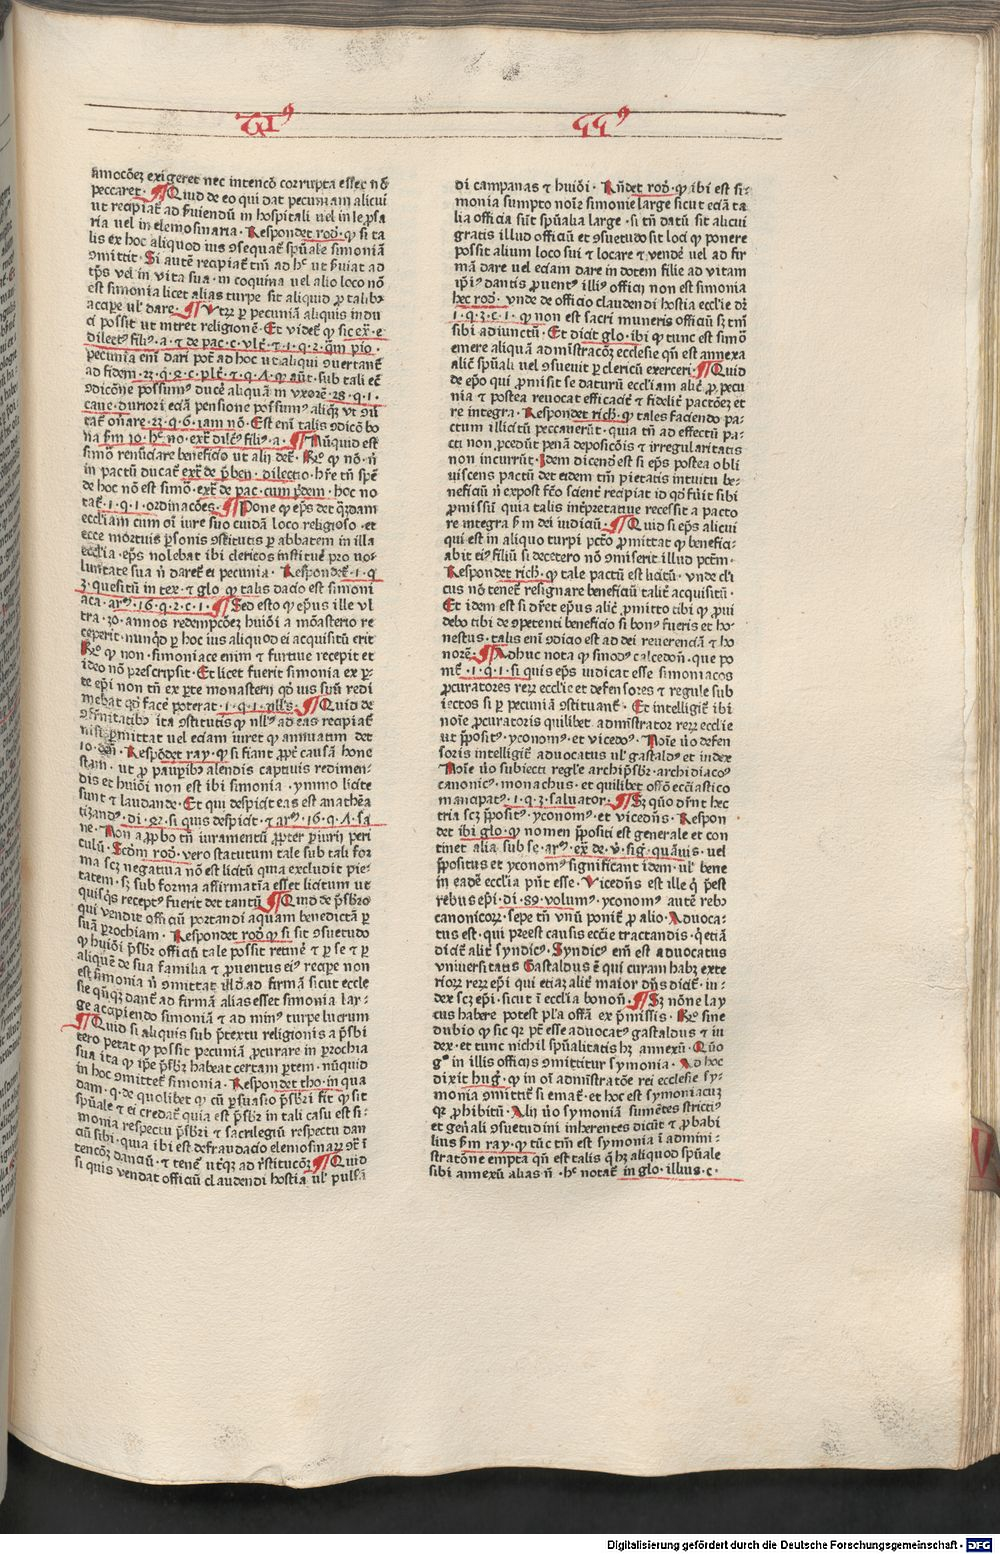 VIꝰ 55ꝰ
āmocōeʒ exigeret nec intencō corrupta esset nō
peccaret · ¶ Quid de eo qui dat pecuniam alicui
ut recipiat̄ ad ẜuiendū in hospitali uel in lep̄sa
ria uel in elemosinaria · Respondet rod̄ · ꝙ si ta
lis ex hoc aliquod ius ꝯsequat̄ sp̄uale simoniā
ꝯmittit · Si autē recipiat̄ tm̄ ad hͨ ut ẜuiat ad
tp̄s vel in vita sua · in coquina vel alio loco nō
est simonia licet alias turpe sit aliquid ꝓ talibꝰ
accipe ul̓ dare · ¶ Vtrꝝ ꝑ pecuniā aliquis indu
ci possit ut intret religionē · Et videt̄ ꝙ sic ex̄ · e ·
dilectꝰ filiꝰ · a · ⁊ de pac · c · vlt̄ · ⁊ · 1 · q · 2 · q̄m pio ·
pecunia em̄ dari pot̄ ad hoc ut aliqui ꝯuertant̄
ad fidem · 23 · q · 8 · c · plt̄ · ⁊ · q · 4 · ꝙ aūt · sub tali cō
ꝯdicōne possumꝰ ducē aliquam in vxorē · 28 · q · 1 ·
caue · duriori eciā pensione possumꝰ aliqꝫ ut ꝯū
tat̄ onare · 23 · q · 6 · iam nō · Est em̄ talis ꝯdicō bo
na ẜm 10 · hͨ no · ext̄ dilc̄tꝰ filiꝰ · a · ¶ Nūquid est
simo renūciare beneficio ut alij det̄ · Rͦ ꝙ nō · n̄
in pactū ducat̄ ext̄ de p̄ben · dilectio · hr̄e tn̄ spē
de hoc nō est simo · ext̄ de pac · cum p̄dem · hoc no
tat̄ · 1 · q · 1 · ordinacōes · ¶ Pone ꝙ ep̄us det q̄rdam
ecclīam cum oī iure suo cuidā loco religioso · et
ecce mortuis ꝑsonis ꝯstitutis ꝑ abbatem in illa
ecclīa · ep̄s nolebat ibi clericos instituē pro vo-
luntate sua n̄ daret̄ ei pecunia · Respondet̄ · 1 · q
3 · quesitū in tex · ⁊ glo · ꝙ talis dacio est simoni
aca · arꝰ · 16 · q · 2 · c · 1 · ¶ Sed esto ꝙ ep̄us ille vl
tra · 30 · annos redempcōez huiōi a mōasterio re
ceperit · nunqͦd ꝑ hoc ius aliquod ei acquisitū erit
Rͦ ꝙ non · simoniace enim ⁊ furtiue recepit et
ideo nō prescripsit · Et licet fuerit simonia ex ꝑ-
te ep̄i non tn̄ ex ꝑte monasterij qͦd ius suū redi
mebat qͦd facē poterat · 1 · q · 1 · nll̄s · ¶ Quid de
ꝯfrnitatibꝰ ita ꝯstitutis ꝙ nll̄ꝰ ad eas recipiat̄
nisi ꝑmittat vel eciam iuret ꝙ annuatim det
10 · den̄ · Respōdet ray · ꝙ si fiant ꝓpt̄ causā hone
stam · ut ꝓ paupibꝰ alendis captiuis redimen-
dis et huiōi non est ibi simonia · ymmo licite
sunt ⁊ laudande · Et qui despicit eas est anathēa
tizandꝰ · di · 42 · si quis despicit · ⁊ arꝰ · 16 · q · 4 · sa
ne · Non aꝓbo tn̄ iuramentū ꝓpter ꝑiurij peri
culū · Scdm rod̄ · vero statutum tale sub tali for
ma scꝫ negatiua nō est licitū quia excludit pie-
tatem · sꝫ sub forma affirmatīa esset licitum ut
quisqͥs receptꝰ fuerit det tantū · ¶ Quid de p̄sbr̄o
qui vendit officiū portandi aquam benedictā ꝑ
suā ꝑrochiam · Respondet rod̄ ꝙ si sit ꝯsuetudo
ꝙ huiōi p̄sbr̄ officiū tale possit retinē ⁊ ꝑ se ⁊ ꝑ
aliquē de sua familia ⁊ ꝓuentus eiꝰ recipe non
est simonia n̄ ꝯmittat illͦd ad firmā sicut eccle
sie qn̄qꝫ dant̄ ad firmā alias esset simonia lar-
ge accipiendo simoniā ⁊ ad minꝰ turpe lucrum
¶ Quid si aliquis sub p̄textu religionis a p̄sbi
tero petat ꝙ possit pecuniā ꝓcurare in ꝑrochia
sua ita ꝙ ip̄e p̄sbr̄ habeat certam ꝑtem · nūquid
in hoc ꝯmittet̄ simonia · Respondet tho · in qua
dam · q · de quolibet ꝙ cū ꝑsuasio p̄sbr̄i fit ꝙ sit
sp̄uale ⁊ ei credat̄ quia est p̄sbr̄ in tali casu est si-
monia respectu p̄sbr̄i ⁊ sacrilegiū respectu dan
ciū sibi · quia ibi est defraudacio elemosinarꝝ ꝯt̄ ī
tencōꝫ danciū · ⁊ tenet̄ utqꝫ ad r̄stitucōꝫ ¶ Quid
si quis vendat officiū claudendi hostia ul̓ pulsā
di campanas ⁊ huiōi · Rn̄det rod̄ · ꝙ ibi est si-
monia sumpto noīe simonie large sicut eciā ta
lia officia sūt sp̄ualia large · si tn̄ datū sit alicui
gratis illud officiū et ꝯsuetudo sit loci ꝙ ponere
possit alium loco sui ⁊ locare ⁊ vendē vel ad fir
mā dare vel eciam dare in dotem filie ad vitam
ip̄iꝰ dantis ꝓuentꝰ illiꝰ officij non est simonia
hec rod̄ · vnde de officio claudendi hostia ecclīe dꝛ
1 · q · 3 · c · 1 · ꝙ non est sacri muneris officiū sꝫ tm̄
sibi adiunctū · Et dicit glo · ibi ꝙ tunc est simō
emere aliquā admīstracōꝫ ecclesie qn̄ est annexa
alic̄ sp̄uali vel ꝯsueuit ꝑ clericū exerceri · ¶ Quid
de ep̄o qui ꝓmisit se daturū ecclīam alic̄ ꝓ pecu
nia ⁊ postea reuocat efficacit̄ ⁊ fidelit̄ pactōeꝫ et
re integra · Respondet rich̄ · ꝙ tales faciendo pa-
ctum illicitū peccauerūt · quia tn̄ ad effectū pa-
cti non ꝓcedūt penā deposicōis ⁊ irregularitatis
non incurrūt · Idem dicendū est si ep̄s postea obli
uiscens pactū det eidem tm̄ pietatis intuitu be-
neficiū n̄ expost fcō scient̄ recipiat id qͦd fuit sibi
ꝓmissū quia talis intꝑretatiue recessit a pacto
re integra ẜm dei iudiciū · ¶ Quid si ep̄s alicui
qui est in aliquo turpi pct̄o ꝓmittat ꝙ benefici-
abit eiꝰ filiū si decetero nō ꝯmiserit illud pctm̄ ·
Respondet rich̄ · ꝙ tale pactū est licitū · vnde cl̓i
cus nō tenet̄ resignare beneficiū talit̄ acquisitū ·
Et idem est si dr̄et ep̄us alic̄ ꝓmitto tibi ꝙ ꝓui
debo tibi de ꝯpetenti beneficio si bonꝰ fueris et ho-
nestus · talis em̄ ꝯdicio est ad dei reuerenciā ⁊ ho
norē · ¶ Adhuc nota ꝙ sinodꝰ calcedon̄ · que po
mt̄ · 1 · q · 1 · si quis ep̄s iudicat esse simoniacos
ꝓcuratores reꝝ ecclīe et defensores ⁊ regule sub
iectos si ꝑ pecuniā ꝯstituant̄ · Et intelligit̄ ibi
noīe ꝓcuratoris quilibet admīstrator reꝝ ecclīe
ut p̄positꝰ · yconomꝰ · et vicedoꝰ · Noīe ūo defen
soris intelligit̄ aduocatus ul̓ gastaldꝰ et iudex
Noīe ūo subiecti regl̓e archip̄sbr̄ · archidiacoꝰ
canonicꝰ · monachus · et quilibet offō eccl̄iastico
mancipatꝰ · 1 · q · 3 · saluator · ¶ Sꝫ qūo dr̄nt hec
tria scꝫ p̄positꝰ · yconomꝰ · et vicedn̄s · Respon
det ibi glo · ꝙ nomen p̄positi est generale et con
tinet alia sub se · arꝰ · ex̄ de · v̄ · sig̓ · quāuis · uel
p̄positus et yconomꝰ significant idem · ul̓ bene
in eadē ecclīa pn̄t esse · Vicedn̄s est ille qͥ p̄est
rebus ep̄i · di · 89 · volumꝰ · yconomꝰ autē rebꝰ
canonicoꝝ · sepe tn̄ vnū ponit̄ ꝓ alio · Aduoca-
tus est · qui preest causis eccīe tractandis · qͥ etiā
dicit̄ alit̄ syndicꝰ · Syndicꝰ em̄ est aduocatus
vniuersitatis Gastaldus ē qui curam habꝫ exte
rioꝝ reꝝ ep̄i qui etiaꝫ alit̄ maior dn̄s dicit̄ · iu-
dex scꝫ ep̄i · sicut ī ecclīa bonon̄ · ¶ Sꝫ nōne lay
cus habere potest pl̓a offā ex p̄missis · Rͦ sine
dubio ꝙ sic qꝛ pt̄ esse aduocatꝰ gastaldus ⁊ iu
dex · et tunc nichil sp̄ualitatis hꝫ annexū · Qūo
gͦ in illis officijs ꝯmittitur symonia · Ad hoc
dixit hug̓ · ꝙ in oī admīstratōe rei ecclesie sy-
monia ꝯmittit̄ si emat̄ · et hoc est symoniacū
qꝛ ꝓhibitū · Alij ūo symoniā sumētes strictiꝰ
et gen̄ali ꝯsuetudini inherentes dicūt ⁊ ꝓbabi
lius ẜm ray · ꝙ tūc tm̄ est symonia ī admini-
stratōne empta qn̄ est talis qͥ hꝫ aliquod sp̄uale
sibi annexū alias n̄ · hͨ notat̄ in glo · illius · c ·
Digitalisierung gefördert durch die Deutsche Forschungsgemeinschaft - DFG